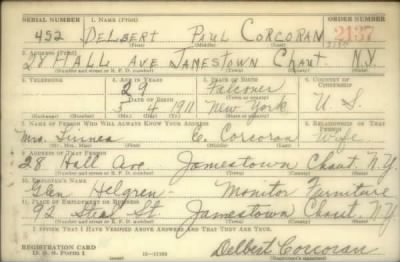 SERIAL NUMBER 1. NAME (Print) ORDER NUMBER
452 DELBERT PAUL CORCORAN 2137
(First) (Middle) (Last)
2. ADDRESS (Print)
28 HALL AVE JAMESTOWN Chaut. N.Y.
(Number and street or R. F. D. number) (Town) (County) (State)
3. TELEPHONE 4. AGE IN YEARS 5. PLACE OF BIRTH 6. COUNTRY OF CITIZENSHIP
29 Falconer
DATE OF BIRTH (Town or county)
5 4 1911 New York U. S.
(Mo.) (Day) (Yr.) (State or country)
7. NAME OF PERSON WHO WILL ALWAYS KNOW YOUR ADDRESS 8. RELATIONSHIP OF THAT PERSON
Mrs. E. Corcoran Wife
(Mr., Mrs., Miss) (First) (Middle) (Last)
9. ADDRESS OF THAT PERSON
28 Hall Ave Jamestown Chaut. N.Y.
(Number and street or R. F. D. number) (Town) (County) (State)
10. EMPLOYER'S NAME
Glen Helgren - Monitor Furniture
11. PLACE OF EMPLOYMENT OR BUSINESS
92 Steel St. Jamestown Chaut. N.Y.
(Number and street or R. F. D. number) (Town) (County) (State)
I AFFIRM THAT I HAVE VERIFIED ABOVE ANSWERS AND THAT THEY ARE TRUE.
REGISTRATION CARD
D. S. S. Form 1 Delbert Corcoran
(Registrant's signature)